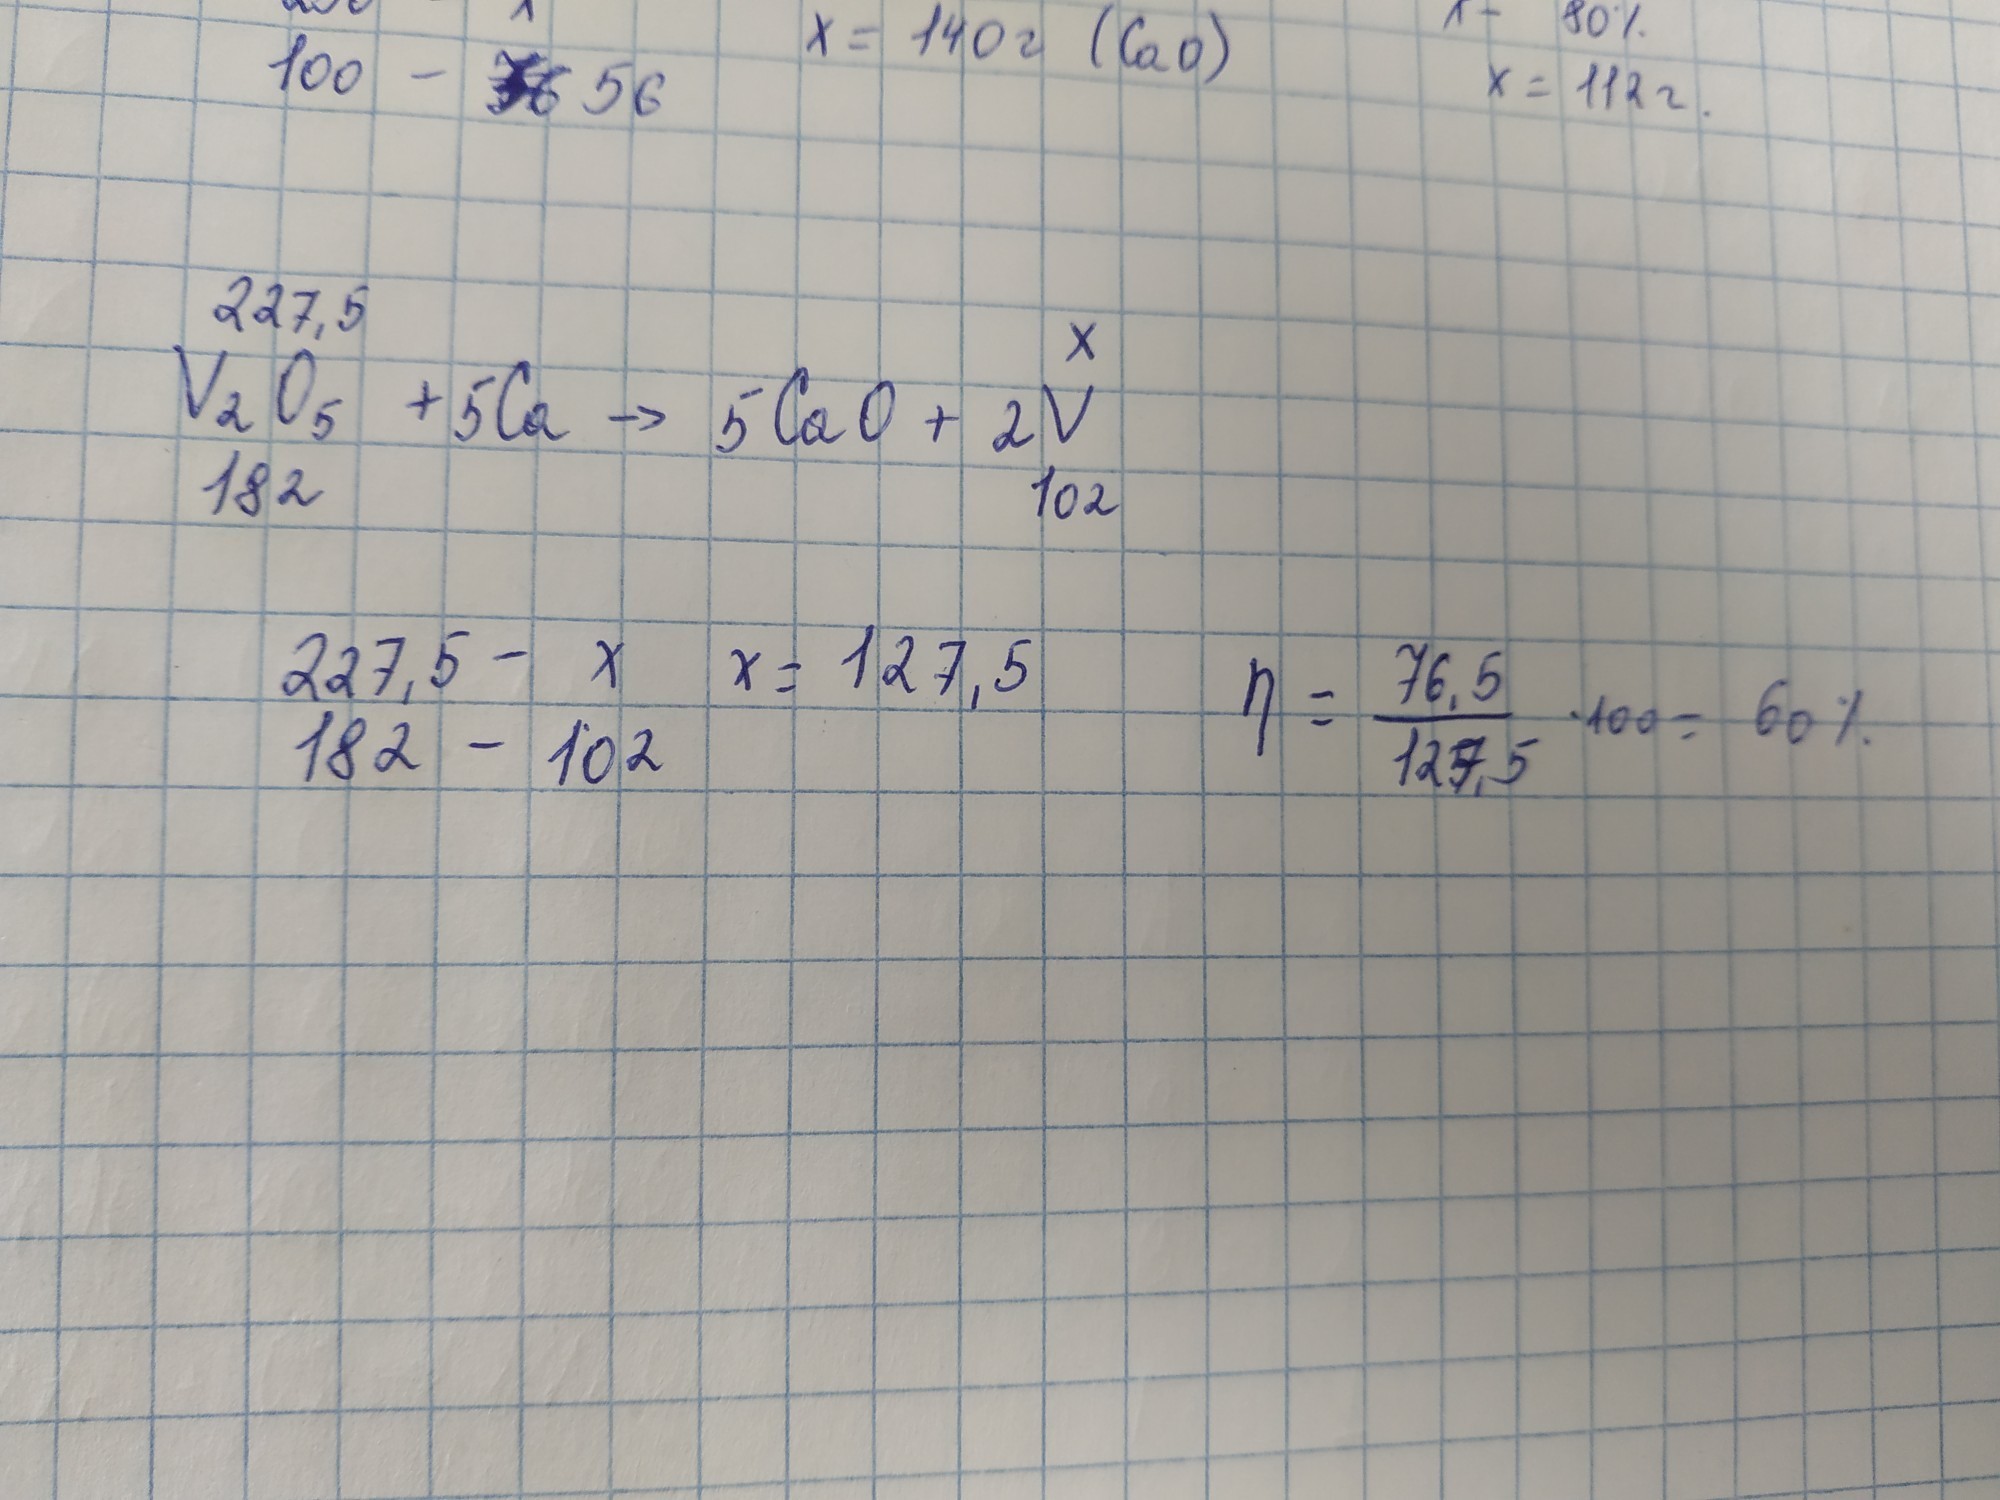 x = 140г (CaO)
80%
100 - 56
x = 112г.
227,5
x
V₂O₅ + 5Ca → 5CaO + 2V
182
102
227,5 - x x = 127,5
182 - 102
η = 76,5/127,5 · 100 = 60%.